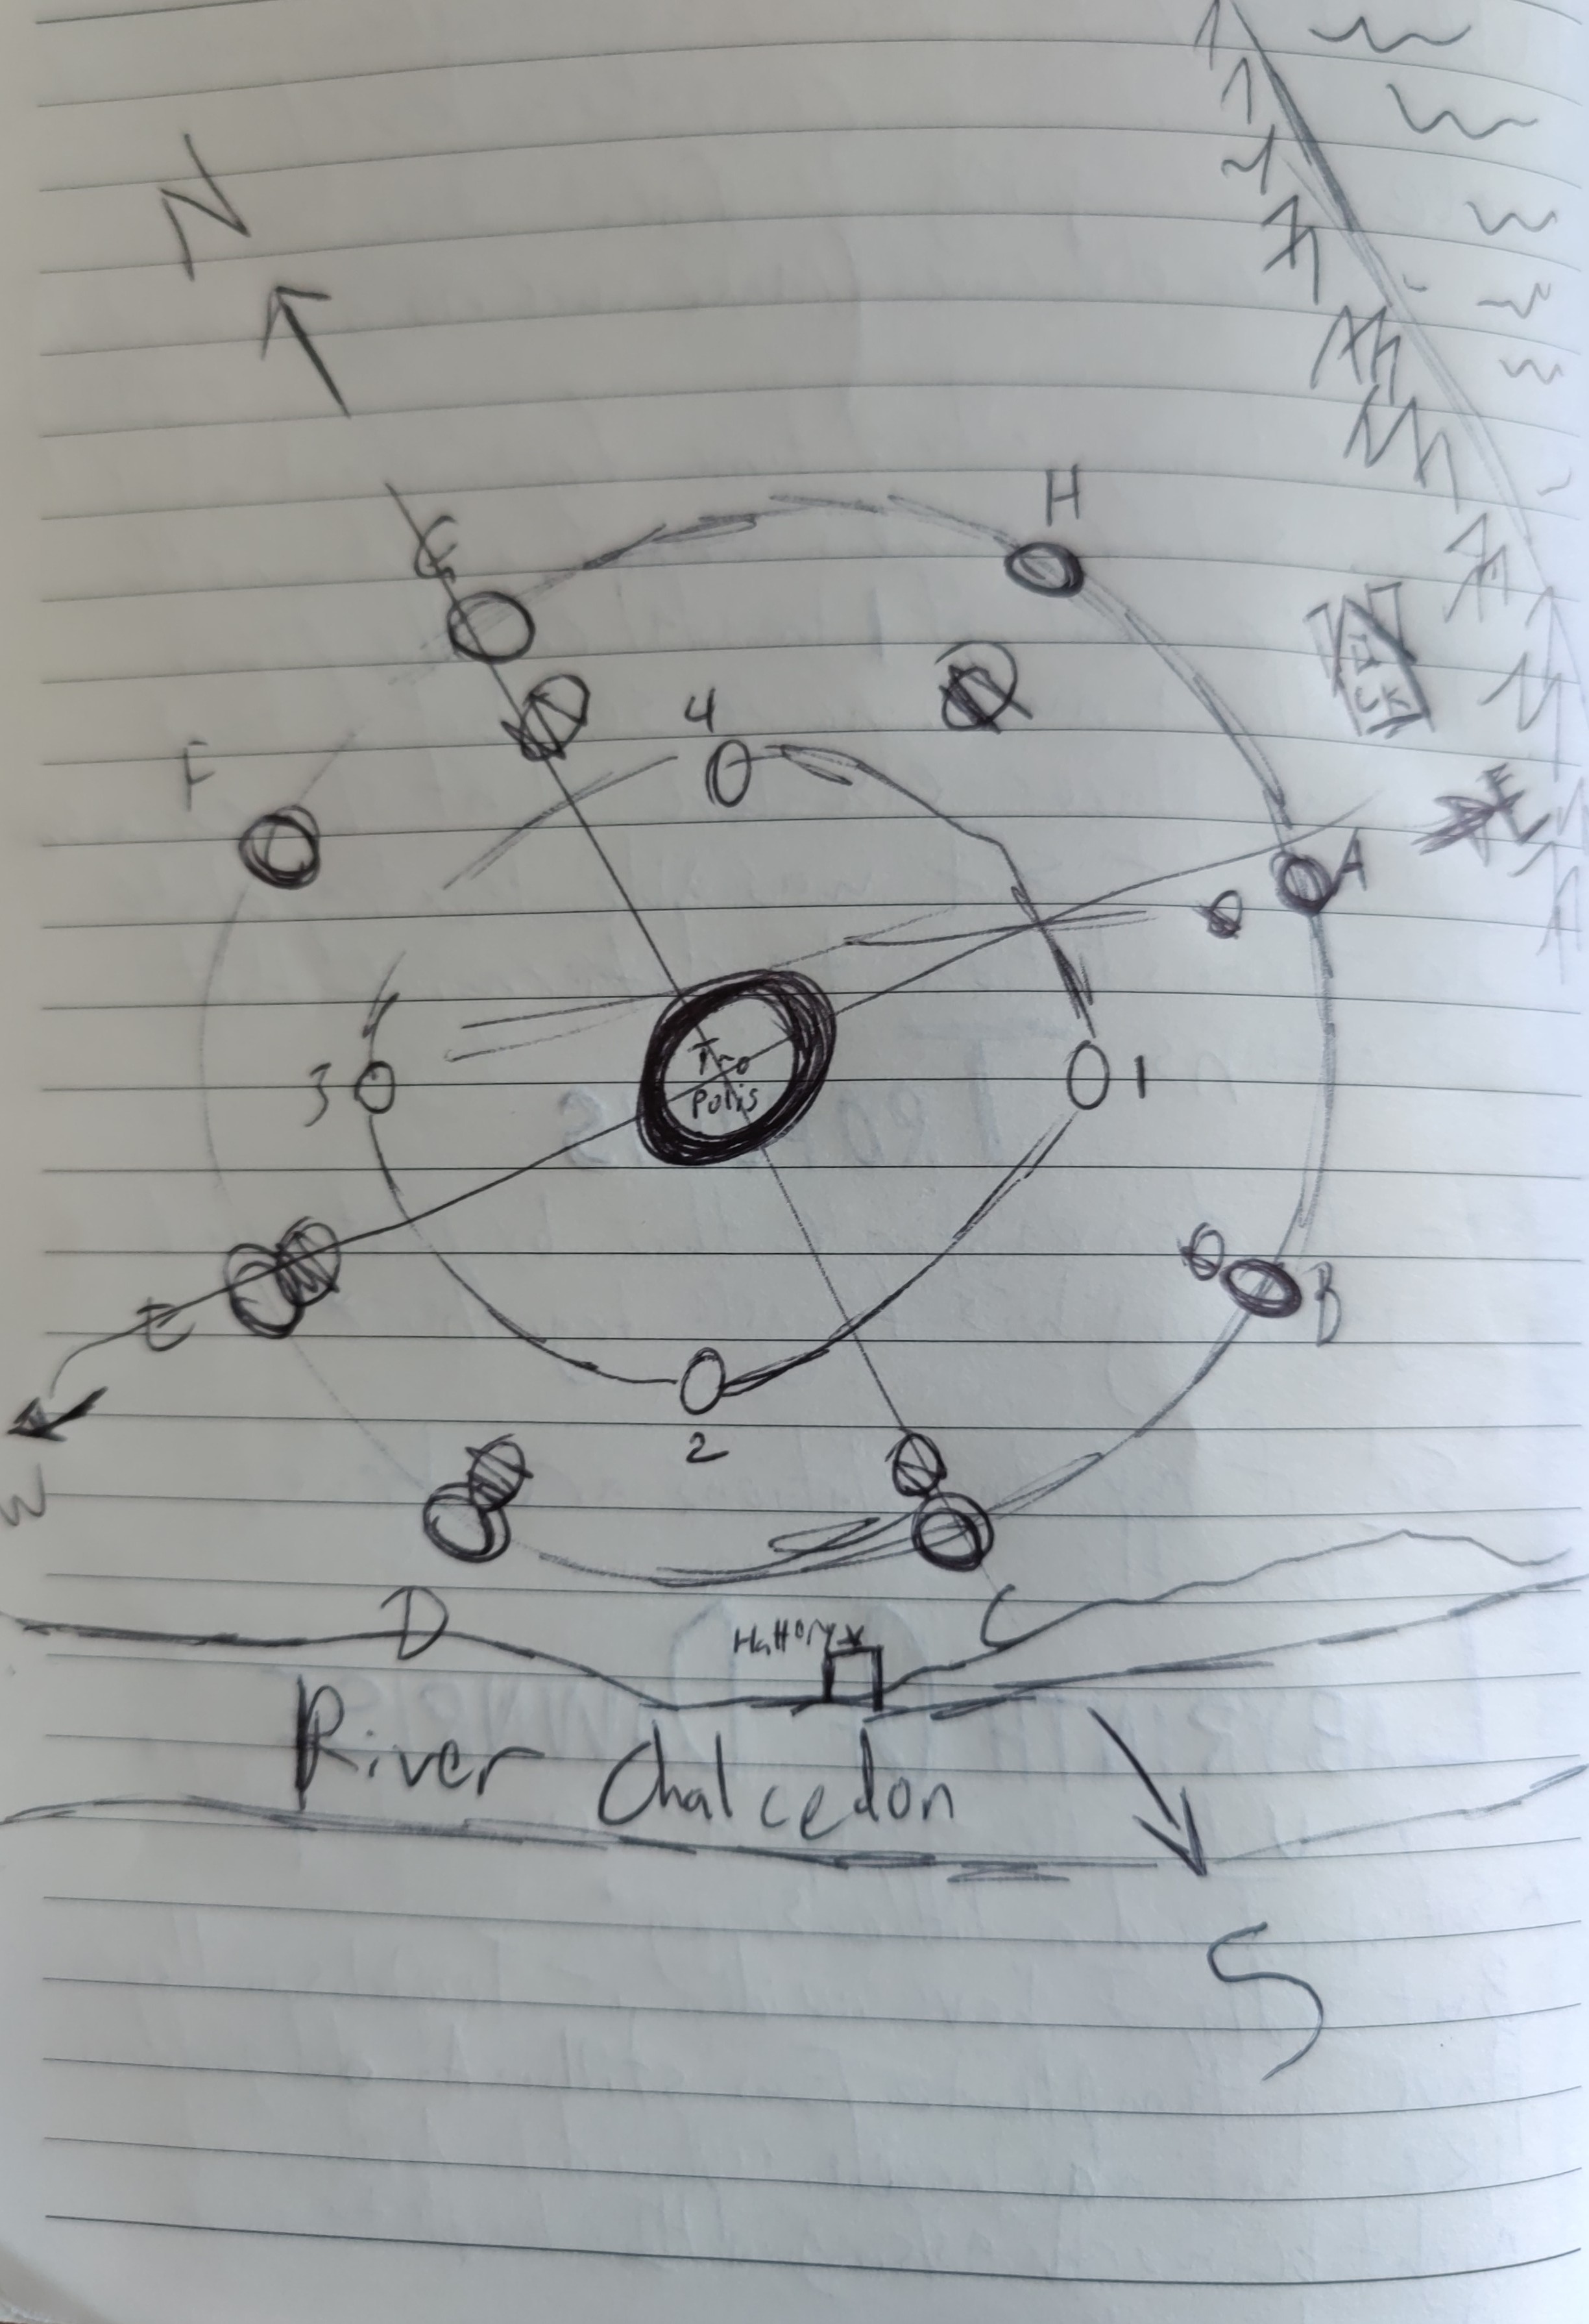 N
H
G
4
F
E
A
Tro
Polis
3
1
E
B
W
2
D
C
Hattory
River Chalcedon
S